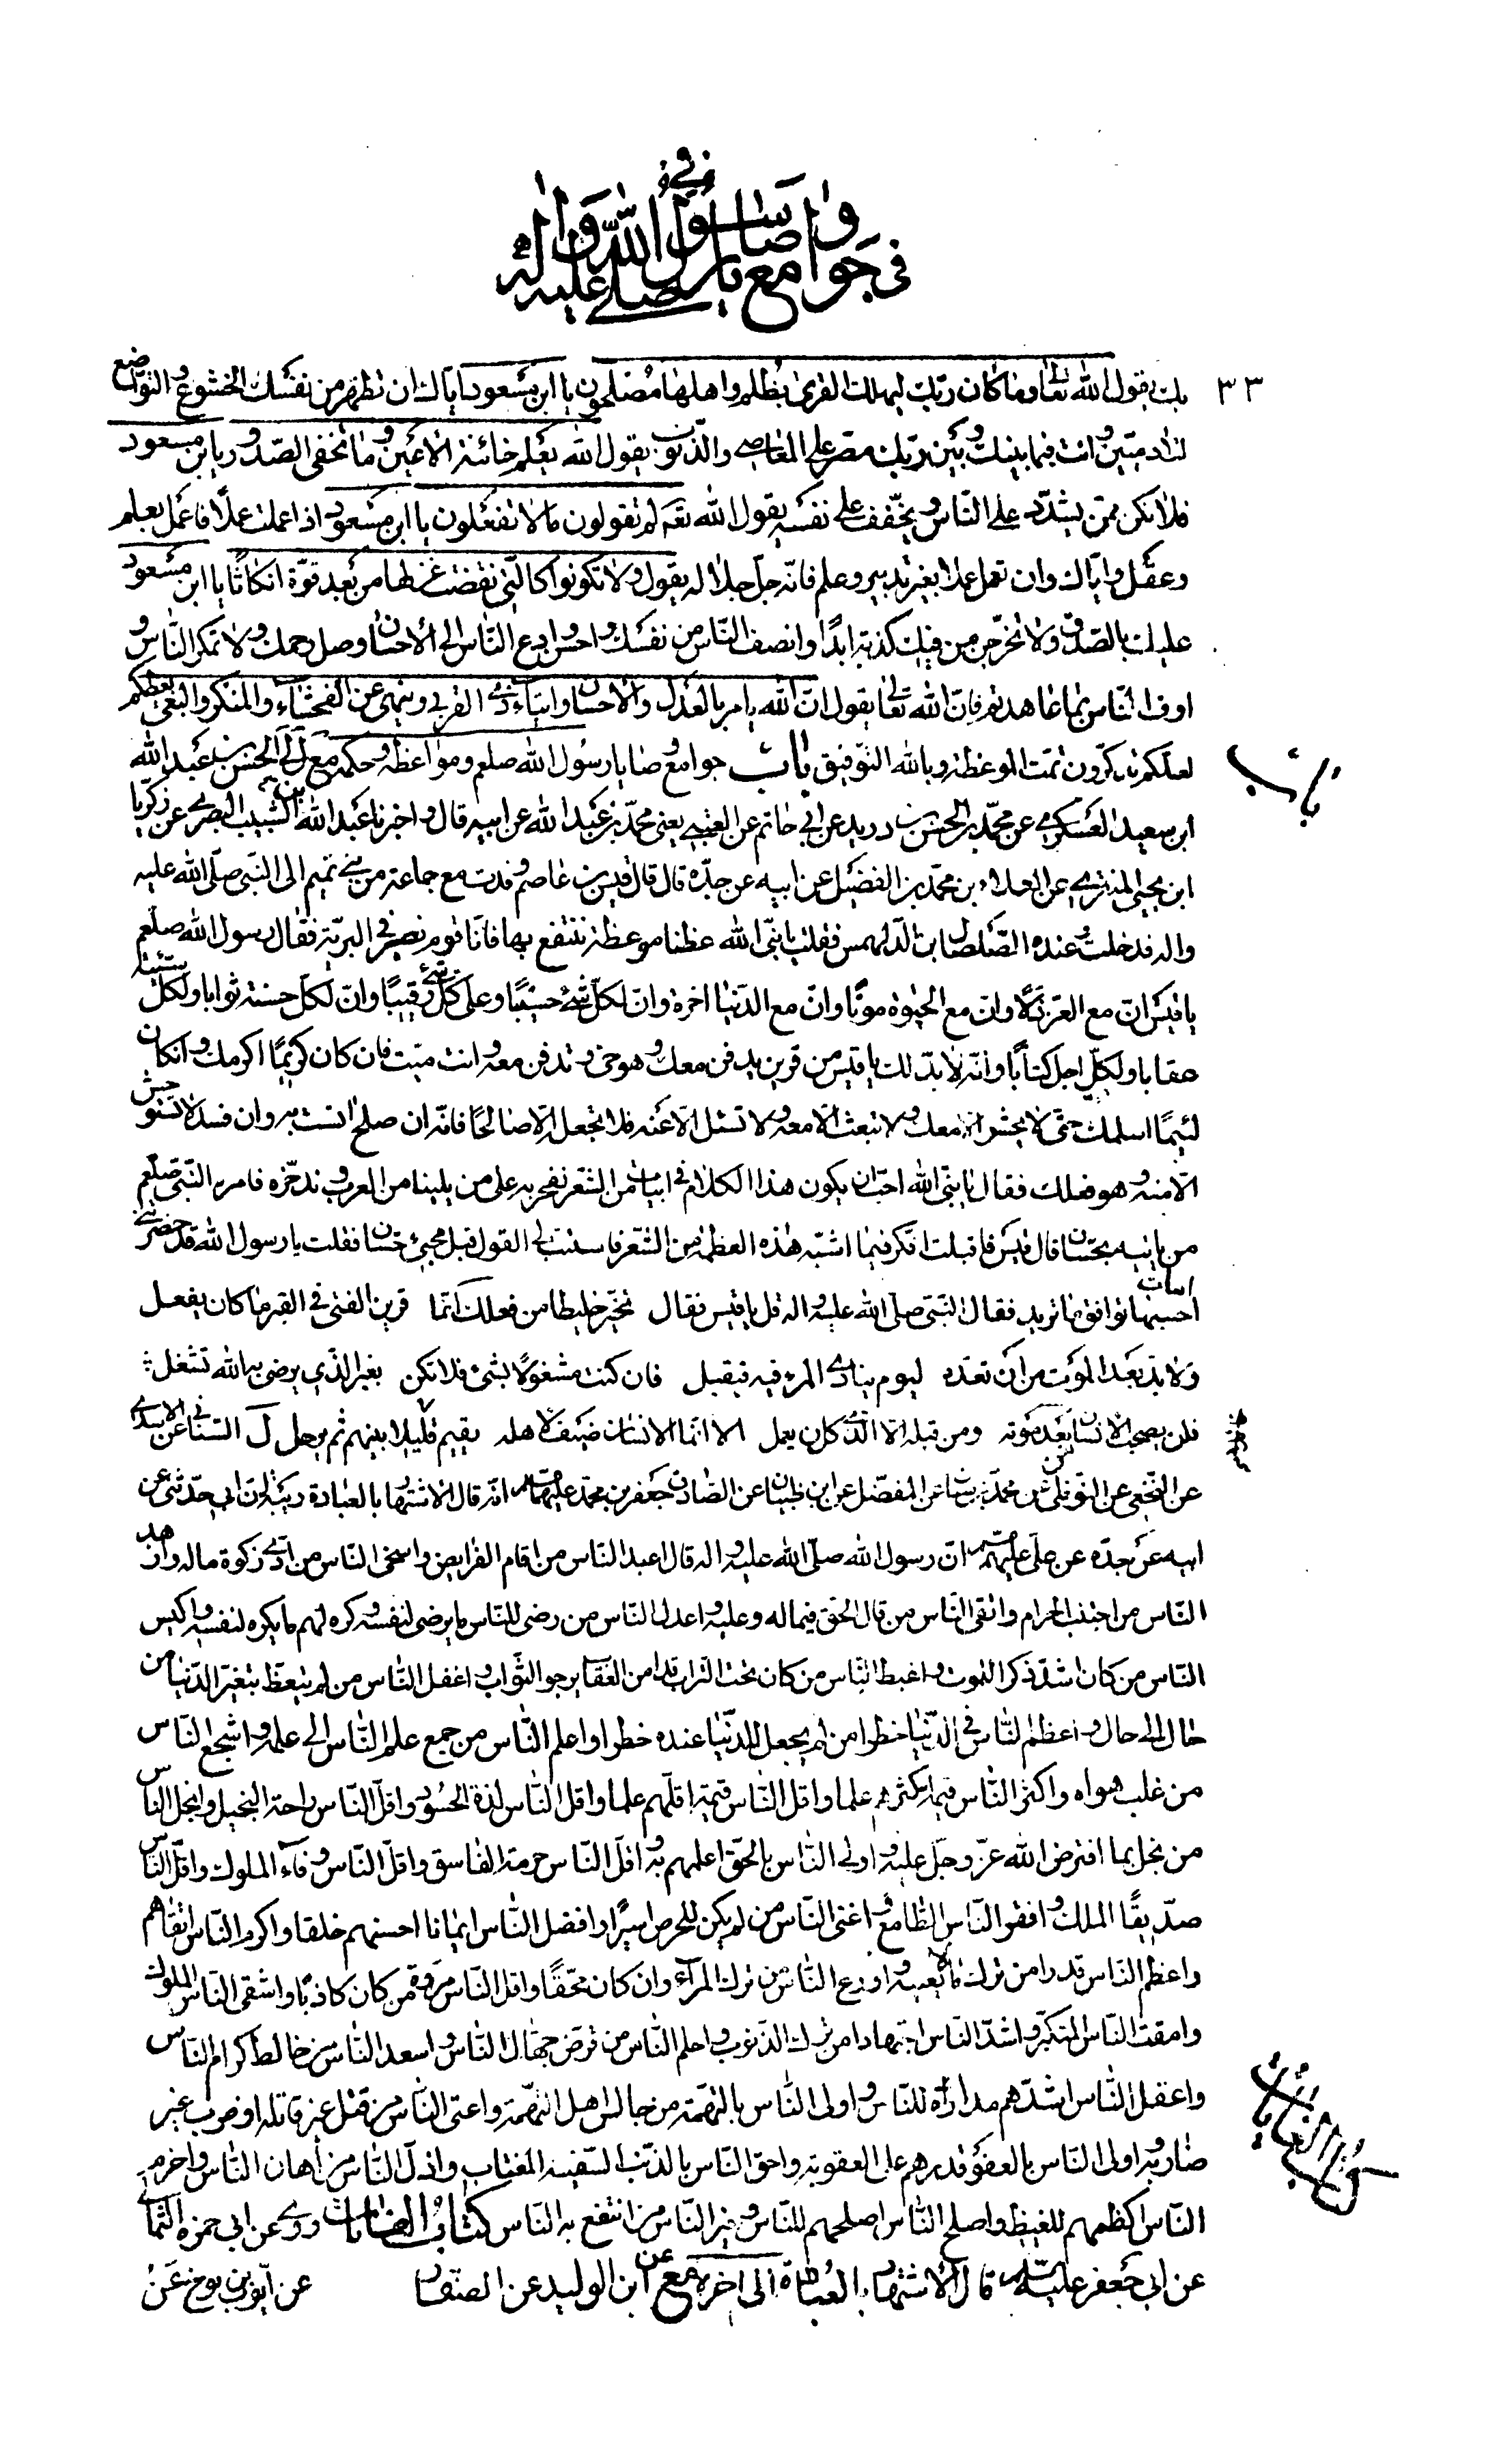 في جوامع وصايا رسول الله صلى الله عليه وآله
٣٣
بك يقول الله تعالى وما كان ربك ليهلك القرى بظلم واهلها مصلحون يا ابن مسعود اياك ان تظهر من نفسك الخشوع والتواضع
للآدميين وانت فيما بينك وبين ربك مصر على المعاصي والذنوب يقول الله يعلم خائنة الاعين وما تخفى الصدور يا ابن مسعود
فلا تكن ممن يشدد على الناس ويخفف على نفسه يقول الله تعالى لم تقولون ما لا تفعلون يا ابن مسعود اذا عملت عملا فاعمل بعلم
وعقل واياك وان تعمل عملا بغير تدبير وعلم فانه جل جلاله يقول ولا تكونوا كالتى نقضت غزلها من بعد قوة انكاثا يا ابن مسعود
عليك بالصدق ولا تخرجن من فيك كذبة ابدا وانصف الناس من نفسك واحسن وادع الناس الى الاحسان وصل رحمك ولا تمكر الناس و
اوف الناس بما عاهدتهم فان الله تعالى يقول ان الله يامر بالعدل والاحسان وايتاء ذي القربى وينهى عن الفحشاء والمنكر والبغي يعظكم
لعلكم تذكرون تمت الموعظة وبالله التوفيق باب جوامع وصايا رسول الله صلعم ومواعظه وحكمه مع ل لى الحسن بن عبد الله
باب
ابن سعيد العسكري عن محمد بن الحسن بن دريد عن ابي حاتم عن العتبي يعنى محمد بن عبد الله عن ابيه قال واخبرنا عبد الله بن شبيب البصري عن زكريا
ابن يحيى المنقري عن العلاء بن محمد بن الفضيل عن ابيه عن جده قال قال قيس بن عاصم وفدت مع جماعة من بني تميم الى النبي صلى الله عليه
واله فدخلت وعنده الصلصال بن الدلهمس فقلت يا نبي الله عظنا موعظة ننتفع بها فانا قوم نصير في البرية فقال رسول الله صلعم
يا قيس ان مع العز ذلا وان مع الحيوة موتا وان مع الدنيا اخرة وان لكل شئ حسيبا وعلى كل شئ رقيبا وان لكل حسنة ثوابا ولكل سيئة
عقابا ولكل اجل كتابا وانه لا بد لك يا قيس من قرين يدفن معك وهو حي وتدفن معه وانت ميت فان كان كريما اكرمك وان كان
لئيما اسلمك حتى لا يحشر الا معك ولا تبعث الا معه ولا تسئل الا عنه فلا تجعله الا صالحا فانه ان صلح انست به وان فسد لا تستوحش
الا منه وهو فعلك فقال يا نبي الله احب ان يكون هذا الكلام في ابيات من الشعر نفخر به على من يلينا من العرب وندخره فامر النبي صلعم
من ياتيه بحسان قال قيس فاقبلت افكر فيما اشبه هذه العظة من الشعر فاستتب لي القول قبل مجيئ حسان فقلت يا رسول الله قد حضرتني ابيات
احسبها توافق ما تريد فقال النبي صلى الله عليه واله قل يا قيس فقال تخير خليطا من فعالك انما قرين الفتى في القبر ما كان يفعل
ولا بد بعد الموت من ان تعده ليوم ينادى المرء فيه فيقبل فان كنت مشغولا بشئ فلا تكن بغير الذي يرضى به الله تشغل
فلن يصحب الانسان بعد موته ومن قبله الا الذي كان يعمل الا انما الانسان ضيف لاهله يقيم قليلا بينهم ثم يرحل ل السناني عن الاسدي
عن النخعي عن النوفلي عن محمد بن سنان عن المفضل عن ابن ظبيان عن الصادق جعفر بن محمد عليهما السلم انه قال الاشتهار بالعبادة ريبة ان ابي حدثني عن
ابيه عن جده عن علي عليهم السلم ان رسول الله صلى الله عليه واله قال اعبد الناس من اقام الفرايض واسخى الناس من ادى زكوة ماله وازهد
الناس من اجتنب الحرام واتقى الناس من قال الحق فيما له وعليه واعدل الناس من رضى للناس ما يرضى لنفسه وكره لهم ما يكره لنفسه واكيس
الناس من كان اشد ذكر الموت واغبط الناس من كان تحت التراب قد امن العقاب يرجو الثواب واغفل الناس من لم يتعظ بتغير الدنيا من
حال الى حال واعظم الناس في الدنيا خطرا من لم يجعل للدنيا عنده خطرا واعلم الناس من جمع علم الناس الى علمه واشجع الناس
من غلب هواه واكثر الناس قيمة اكثرهم علما واقل الناس قيمة اقلهم علما واقل الناس لذة الحسود واقل الناس راحة البخيل وابخل الناس
من بخل بما افترض الله عز وجل عليه واولى الناس بالحق اعلمهم به واقل الناس حرمة الفاسق واقل الناس وفاء الملوك واقل الناس
صديقا الملك وافقر الناس الطامع واغنى الناس من لم يكن للحرص اسيرا وافضل الناس ايمانا احسنهم خلقا واكرم الناس اتقاهم
واعظم الناس قدرا من ترك ما لا يعنيه واورع الناس من ترك المراء وان كان محقا واقل الناس مروة من كان كاذبا واشقى الناس الملوك
وامقت الناس المتكبر واشد الناس اجتهادا من ترك الذنوب واحلم الناس من فر من جهال الناس واسعد الناس من خالط كرام الناس
واعقل الناس اشدهم مداراة للناس واولى الناس بالتهمة من جالس اهل التهمة واعتى الناس من قتل غير قاتله او ضرب غير
ضاربه واولى الناس بالعفو اقدرهم على العقوبة واحق الناس بالذنب السفيه المغتاب واذل الناس من اهان الناس واحزم
الناس اكظمهم للغيظ واصلح الناس اصلحهم للناس وخير الناس من انتفع به الناس كتاب الغايات روى عن ابي حمزة الثمالي
عن ابي جعفر عليه السلم قال الاشتهار بالعبادة الى اخره مع عن ابن الوليد عن الصفار عن ايوب بن نوح عن
كتاب الغايات